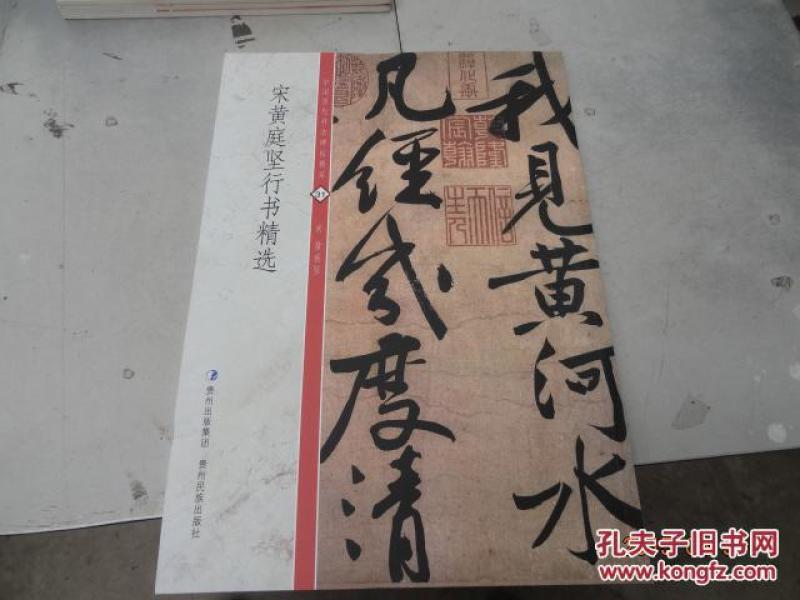 宋黄庭坚行书精选
贵州出版集团 贵州民族出版社
31
我见黄河水
凡经几度清
孔夫子旧书网
www.kongfz.com